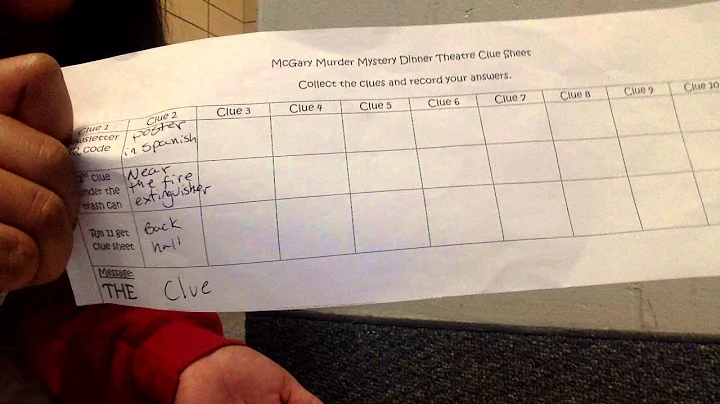 McGary Murder Mystery Dinner Theatre Clue Sheet
Collect the clues and record your answers.
Clue 1 Clue 2 Clue 3 Clue 4 Clue 5 Clue 6 Clue 7 Clue 8 Clue 9 Clue 10
Poster
in Spanish
Code
Clue
Near
the fire
extinguisher
the
trash can
Rm 11 get
Clue Sheet
Back
hall
Message:
THE Clue